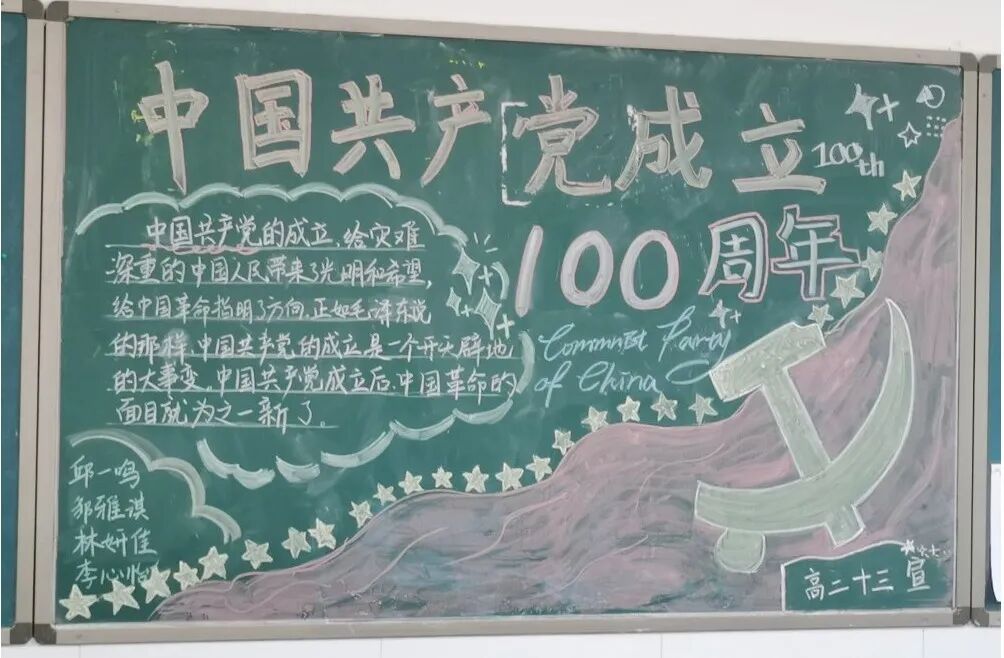 中国共产党成立
100th
100周年
中国共产党的成立,给灾难
深重的中国人民带来了光明和希望,
给中国革命指明了方向,正如毛泽东说
的那样,中国共产党的成立是一个开天辟地
的大事变,中国共产党成立后,中国革命的
面目就为之一新了。
Commnist Party
of China
邱一鸣
邹雅淇
林妍佳
李心怡
高二十三宣